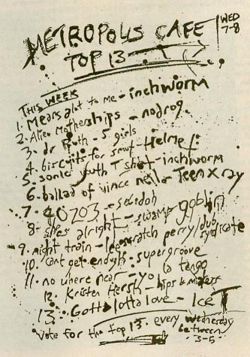 METROPOLIS CAFE
TOP 13
WED
7-8
THIS WEEK
1. Means a lot to me - inchworm
2. Alien motherships - nodrog
3. dr Ruth - 5 girls
4. biscuits for smut - Helmet
5. sonic youth T shirt - inchworm
6. ballad of vince neil - Teen x ray
7. 40703 - sebadoh
8. she's alright - swamp goblin
9. night train - lee scratch perry/dub syndicate
10. can't get enough - supergroove
11. no where near - yo la tengo
12. Kristen Hersh - hips & makers
13. Gotta lotta love - Ice T
Vote for the top 13. every wednesday
between
3-5